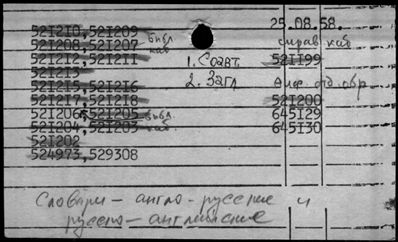 25.08.58.
521210,521209 библ
справ каб
521208,521207 каб
521212,521211 1.Соавт 521199
521213
2.Загл
521215,521216
521217,521218 521200
521206,521205 библ 645129
521204,521203 каб 645130
521202
524973,529308
Словари - англо-русские и
русско-английские